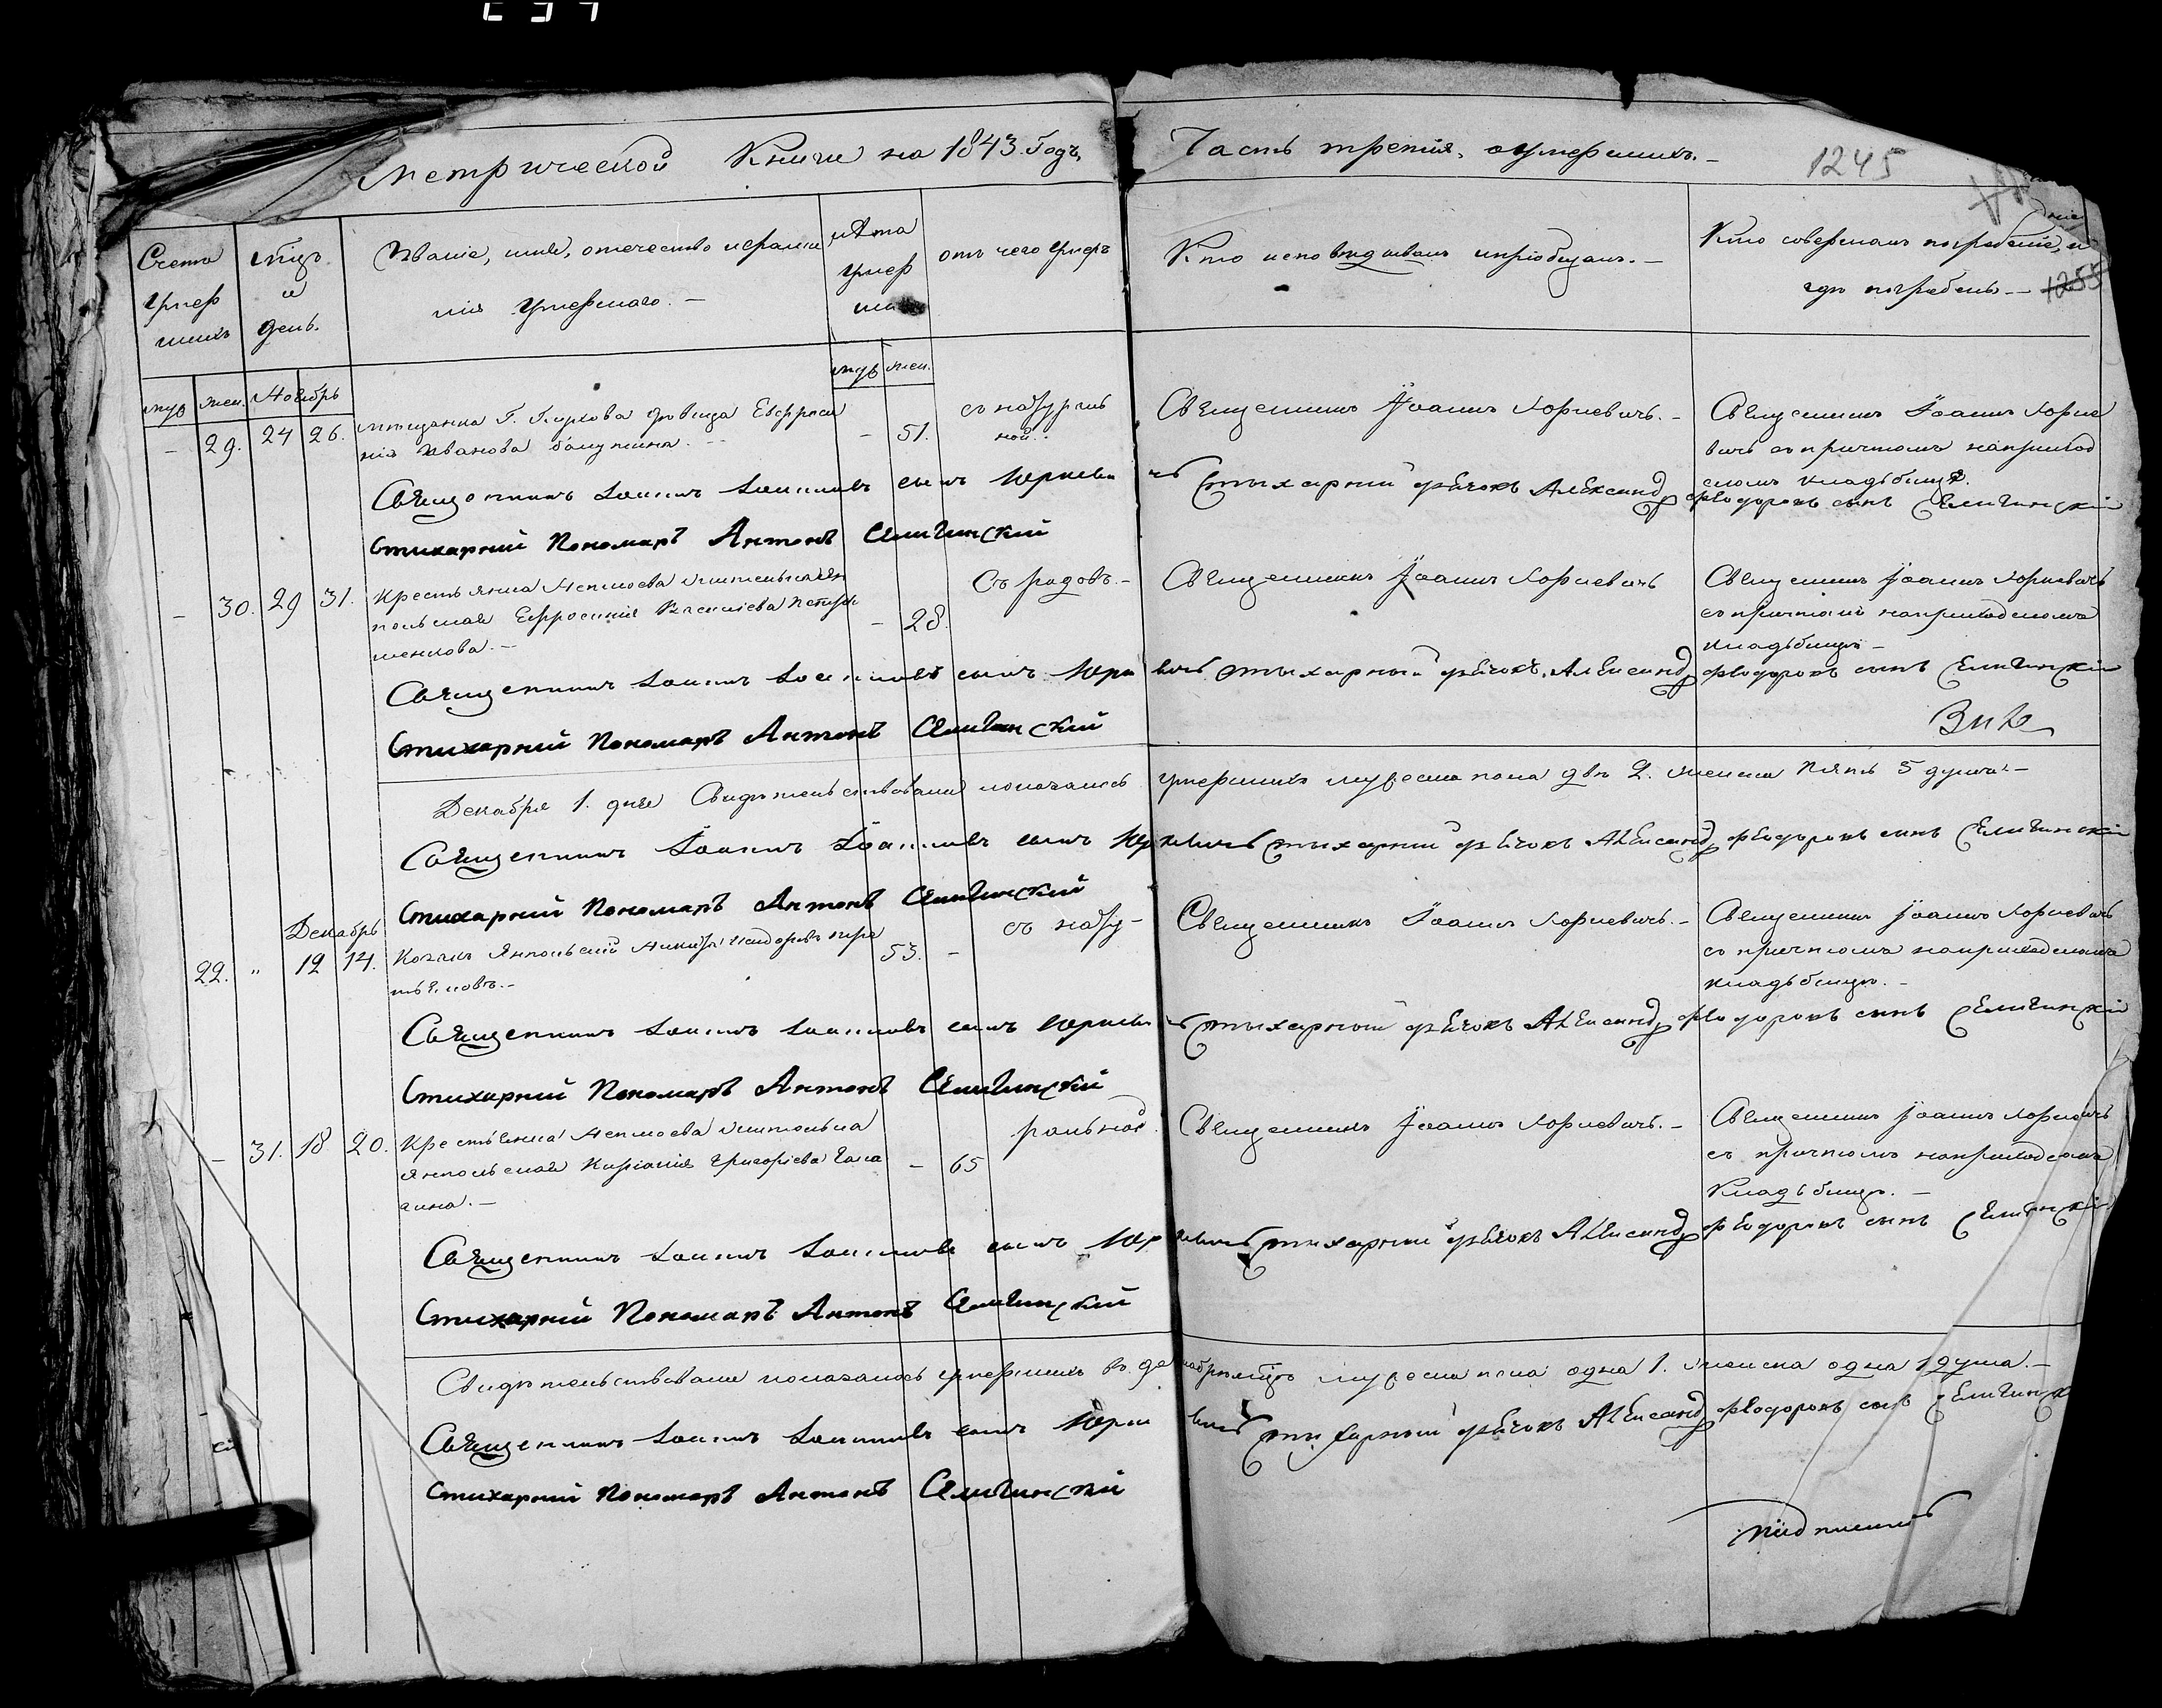 Метрической Книги на 1843. Годъ,
Часть третія, оумершихъ.–
1245
Счетъ умер шихъ
мцъ и день.
Званіе, имя, отечество ифамили
лѣта умер
отъ чего умеръ
Кто исповѣдывалъ ипріобщалъ.–
Кто совершалъ погребеніе, и
гдѣ погребенъ–
1255
ія Умершаго.–
муж жен. Ноябрь
муж жен.
– 29. 24 26.
Мѣщанка Г. Глухова дѣвица Евфроси
нія Иванова
– 51.
съ натураль
ной.
Священникъ Іоаннъ Юркевичъ.–
Священникъ Іоаннъ Юрке
вичъ съ причтомъ наприход
скомъ кладбищѣ.
Священникъ Іоаннъ Іоанновъ сынъ Юркеви
чъ Стихарный дьячокъ Александръ Феодоровъ сынъ Селигинскій
Стихарній Пономаръ Антонъ Селигинскій
– 30. 29 31.
Крестьянка
польская Ефросинія Василіева
шенкова.–
– 28.
Съ родовъ.–
Священникъ Іоаннъ Юркевичъ
Священникъ Іоаннъ Юркевичъ
съ причтомъ наприходскомъ
кладбищѣ–
Священникъ Іоаннъ Іоанновъ сынъ Юрке
вичъ Стихарный дьячокъ Александръ Феодоровъ сынъ Селигинскій
Стихарній Пономаръ Антонъ Селигинскій
Декабря 1. дня Свидѣтельствовано показалось умершихъ мужеска пола двѣ 2. женска пять 5 душъ.–
Священникъ Іоаннъ Іоанновъ сынъ Юркевичъ Стихарный дьячокъ Александръ Феодоровъ сынъ Селигинскій
Стихарній Пономаръ Антонъ Селигинскій
Декабрь
22. " 12 14.
Козакъ Янпольскій
53. –
съ нату–
Священникъ Іоаннъ Юркевичъ.–
Священникъ Іоаннъ Юркевичъ
съ причтомъ наприходскомъ
кладбищѣ.–
Священникъ Іоаннъ Іоанновъ сынъ Юркеви
чъ Стихарный дьячокъ Александръ Феодоровъ сынъ Селигинскій
Стихарній Пономаръ Антонъ Селигинскій
– 31. 18 20.
Крестьянка
янпольская Григоріева
– 65
ральной.
Священникъ Іоаннъ Юркевичъ.–
Священникъ Іоаннъ Юркевичъ
съ причтомъ наприходскомъ
Кладбищѣ.–
Священникъ Іоаннъ Іоанновъ сынъ Юркевичъ Стихарный дьячокъ Александръ Феодоровъ сынъ Селигинскій
Стихарній Пономаръ Антонъ Селигинскій
Свидѣтельствовано показалось умершихъ въ декабрѣ мцѣ мужеска пола одна 1. женска одна 1 душа.–
Священникъ Іоаннъ Іоанновъ сынъ Юркевичъ Стихарный дьячокъ Александръ Феодоровъ сынъ Селигинскій
Стихарній Пономаръ Антонъ Селигинскій